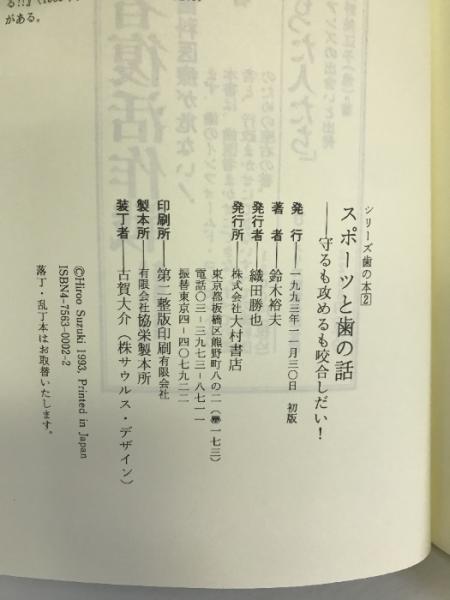 シリーズ歯の本2
スポーツと歯の話
――守るも攻めるも咬合しだい!
発 行――一九九三年一二月三〇日 初版
著 者――鈴木裕夫
発行者――織田勝也
発行所――株式会社大村書店
東京都板橋区熊野町八の二(〒一七三)
電話〇三―三九七三―八七一一
振替東京四―四〇七九二二
印刷所――第二整版印刷有限会社
製本所――有限会社協栄製本所
装丁者――古賀大介(株サウルス・デザイン)
©Hiroo Suzuki 1993, Printed in Japan
ISBN4-7563-0002-2
落丁・乱丁本はお取替いたします。
がある。